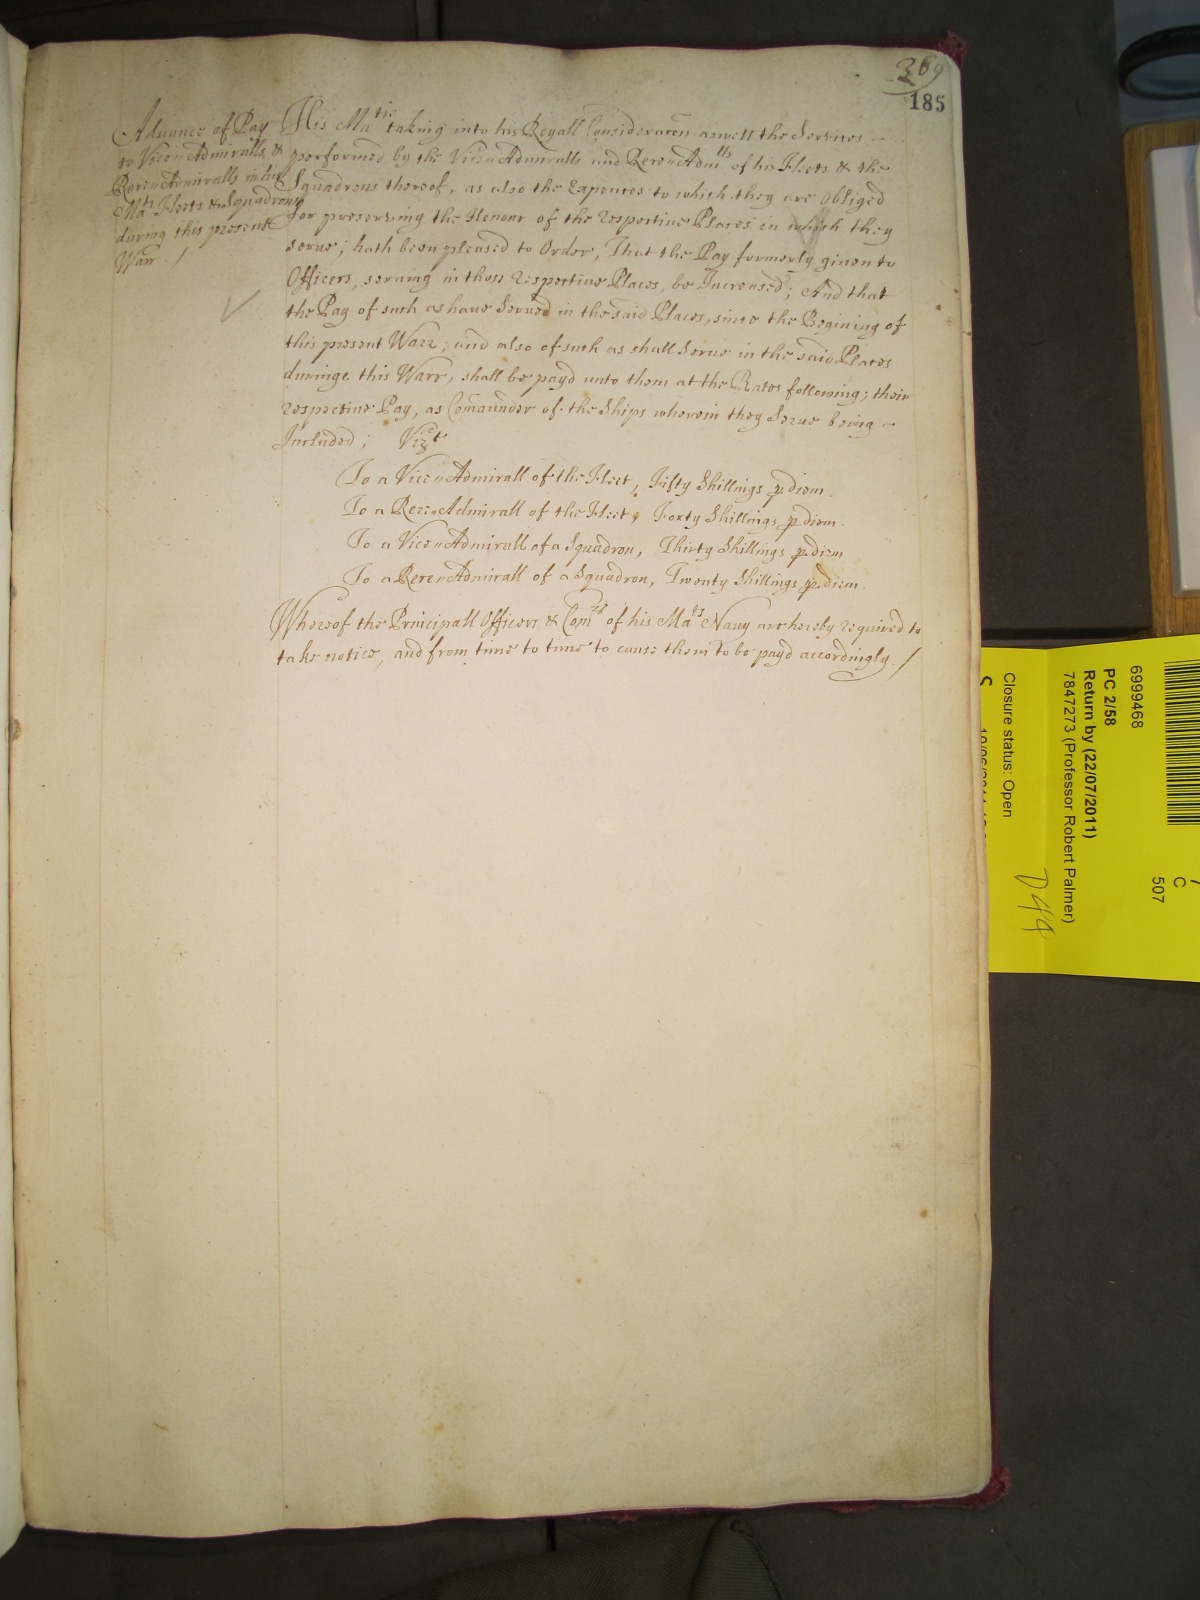 369
185
Aduance of Pay
to Vice=Admiralls, &
Rere=Admiralls in his
Mats Fleets & Squadrons
during this present
Warr. /
His Matie taking into his Royall Consideracõn aswell the Seruices
performed by the Vice=Admiralls and Rere=Admlls of his Fleets & the
Squadrons thereof, as also the Expences to which they are obliged
for preserving the Honour of the respectiue Places in which they
serue; hath been pleased to Order, That the Pay formerly giuen to
Officers, seruing in those respectiue Places, be Increased; And that
the Pay of such as haue Serued in the said Places, since the Begining of
this present Warr; and also of such as shall Serue in the said Places
duringe this Warr, shall be payd unto them at the Rates following; their
respectiue Pay, as Com̃aunder of the Ships wherein they Serue being
Included; Vizt
To a Vice=Admirall of the Fleet, Fifty Shillings p diem.
To a Rere=Admirall of the Fleet, Forty Shillings p diem.
To a Vice=Admirall of a Squadron, Thirty Shillings p diem
To a Rere=Admirall of a Squadron, Twenty Shillings p diem.
Whereof the Principall Officers & Comrs of his Mats Nauy are hereby required to
take notice, and from time to time to cause them to be payd accordingly. /
6999468
PC 2/58
Return by (22/07/2011)
7847273 (Professor Robert Palmer)
Closure status: Open
C
507
D49